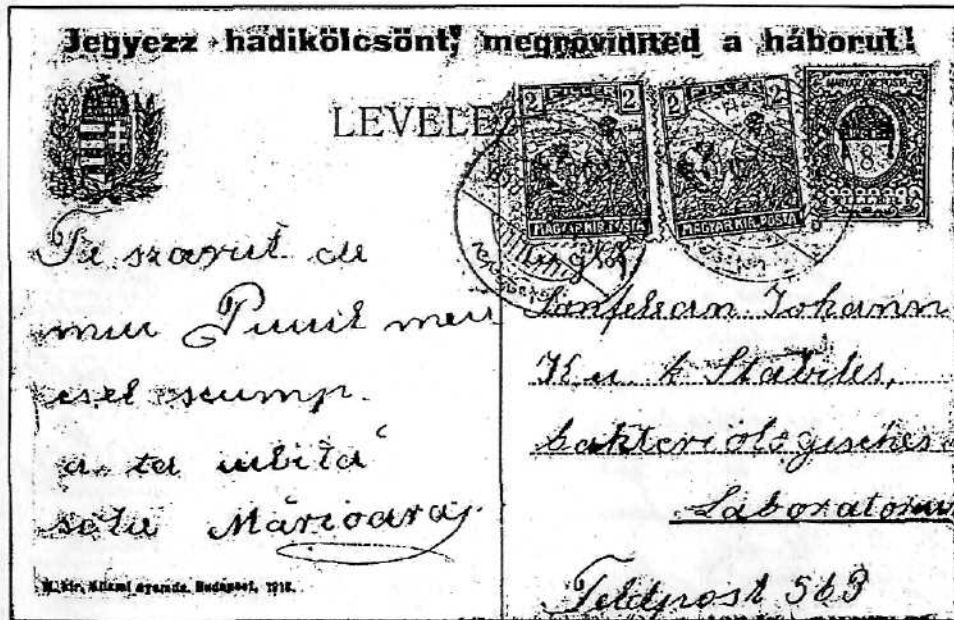 Jegyezz hadikölcsönt, megrövidited a háborut!
LEVELEZ
2 FILLÉR 2
MAGYAR KIR. POSTA
2 FILLÉR 2
MAGYAR KIR. POSTA
MAGYAR KIR. POSTA
8
FILLÉR
Te szarut de
meu Puuil meu
cel scump.
a ta iubită
soția Mărioara
M. kir. állami nyomda. Budapest, 1918.
Johann
K. u. k Stabiles,
bakteriologisches
Laboratorium
Feldpost 563